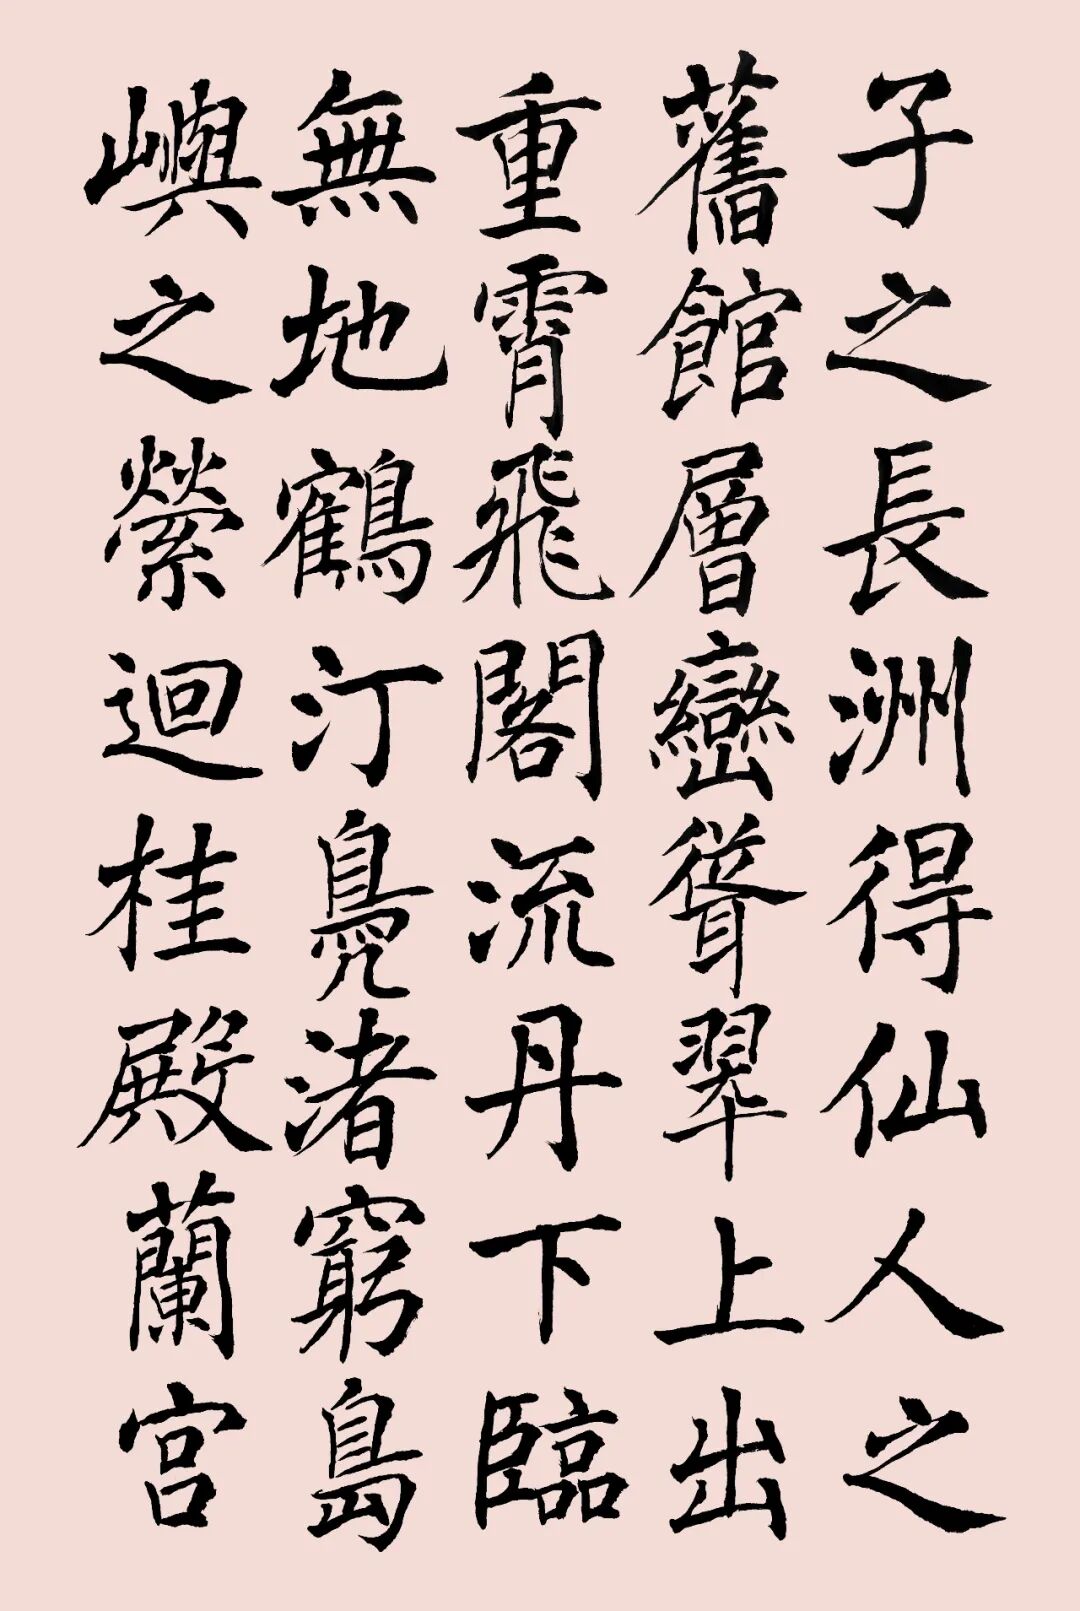 子之長洲得仙人之
舊館層巒聳翠上出
重霄飛閣流丹下臨
無地鶴汀鳧渚窮島
嶼之縈迴桂殿蘭宮